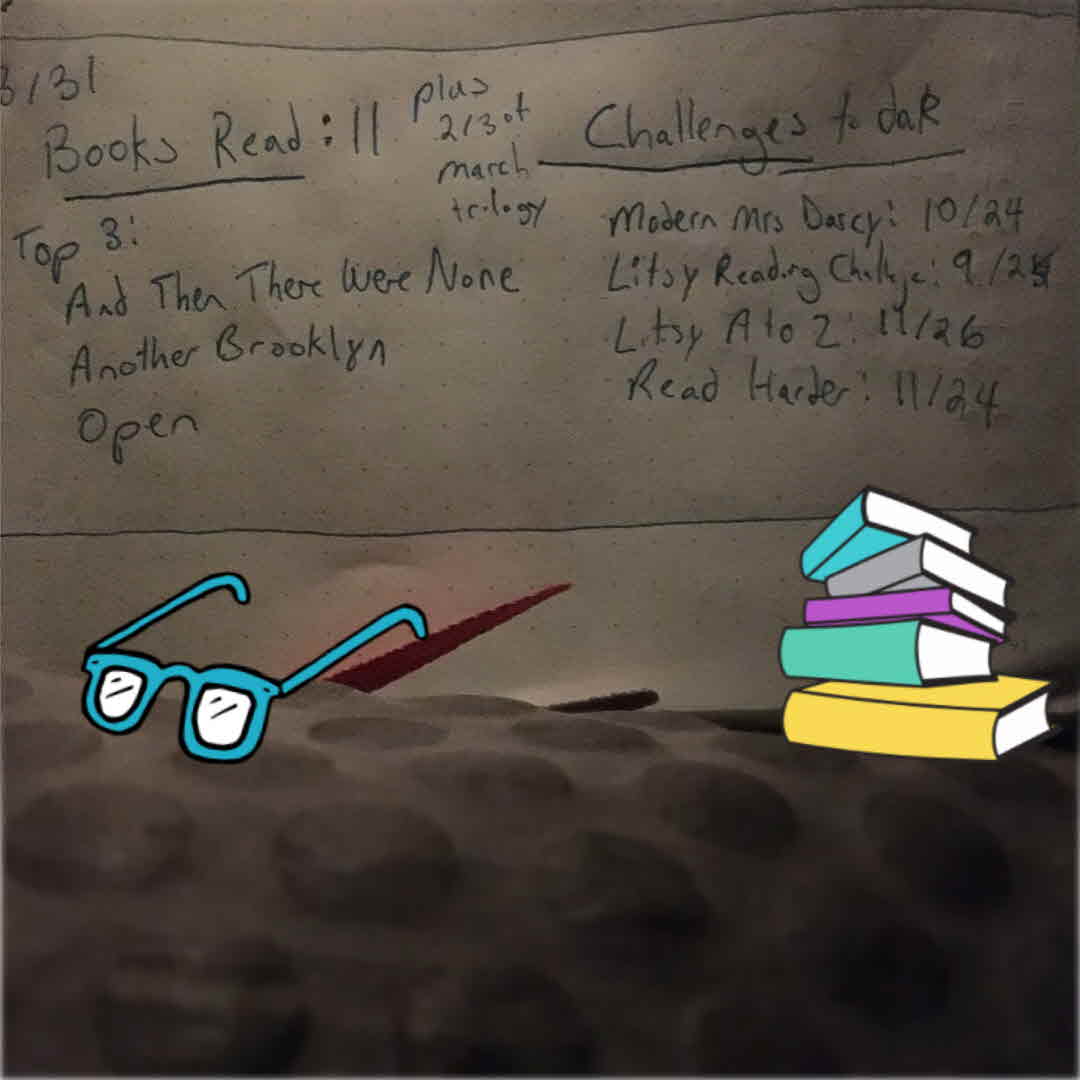 3/31
Books Read: 11
plus
2/3 of
march
trilogy
Top 3:
And Then There Were None
Another Brooklyn
Open
Challenges to date
Modern Mrs Darcy: 10/24
Litsy Reading Challenge: 9/25
Litsy A to Z: 11/26
Read Harder: 11/24